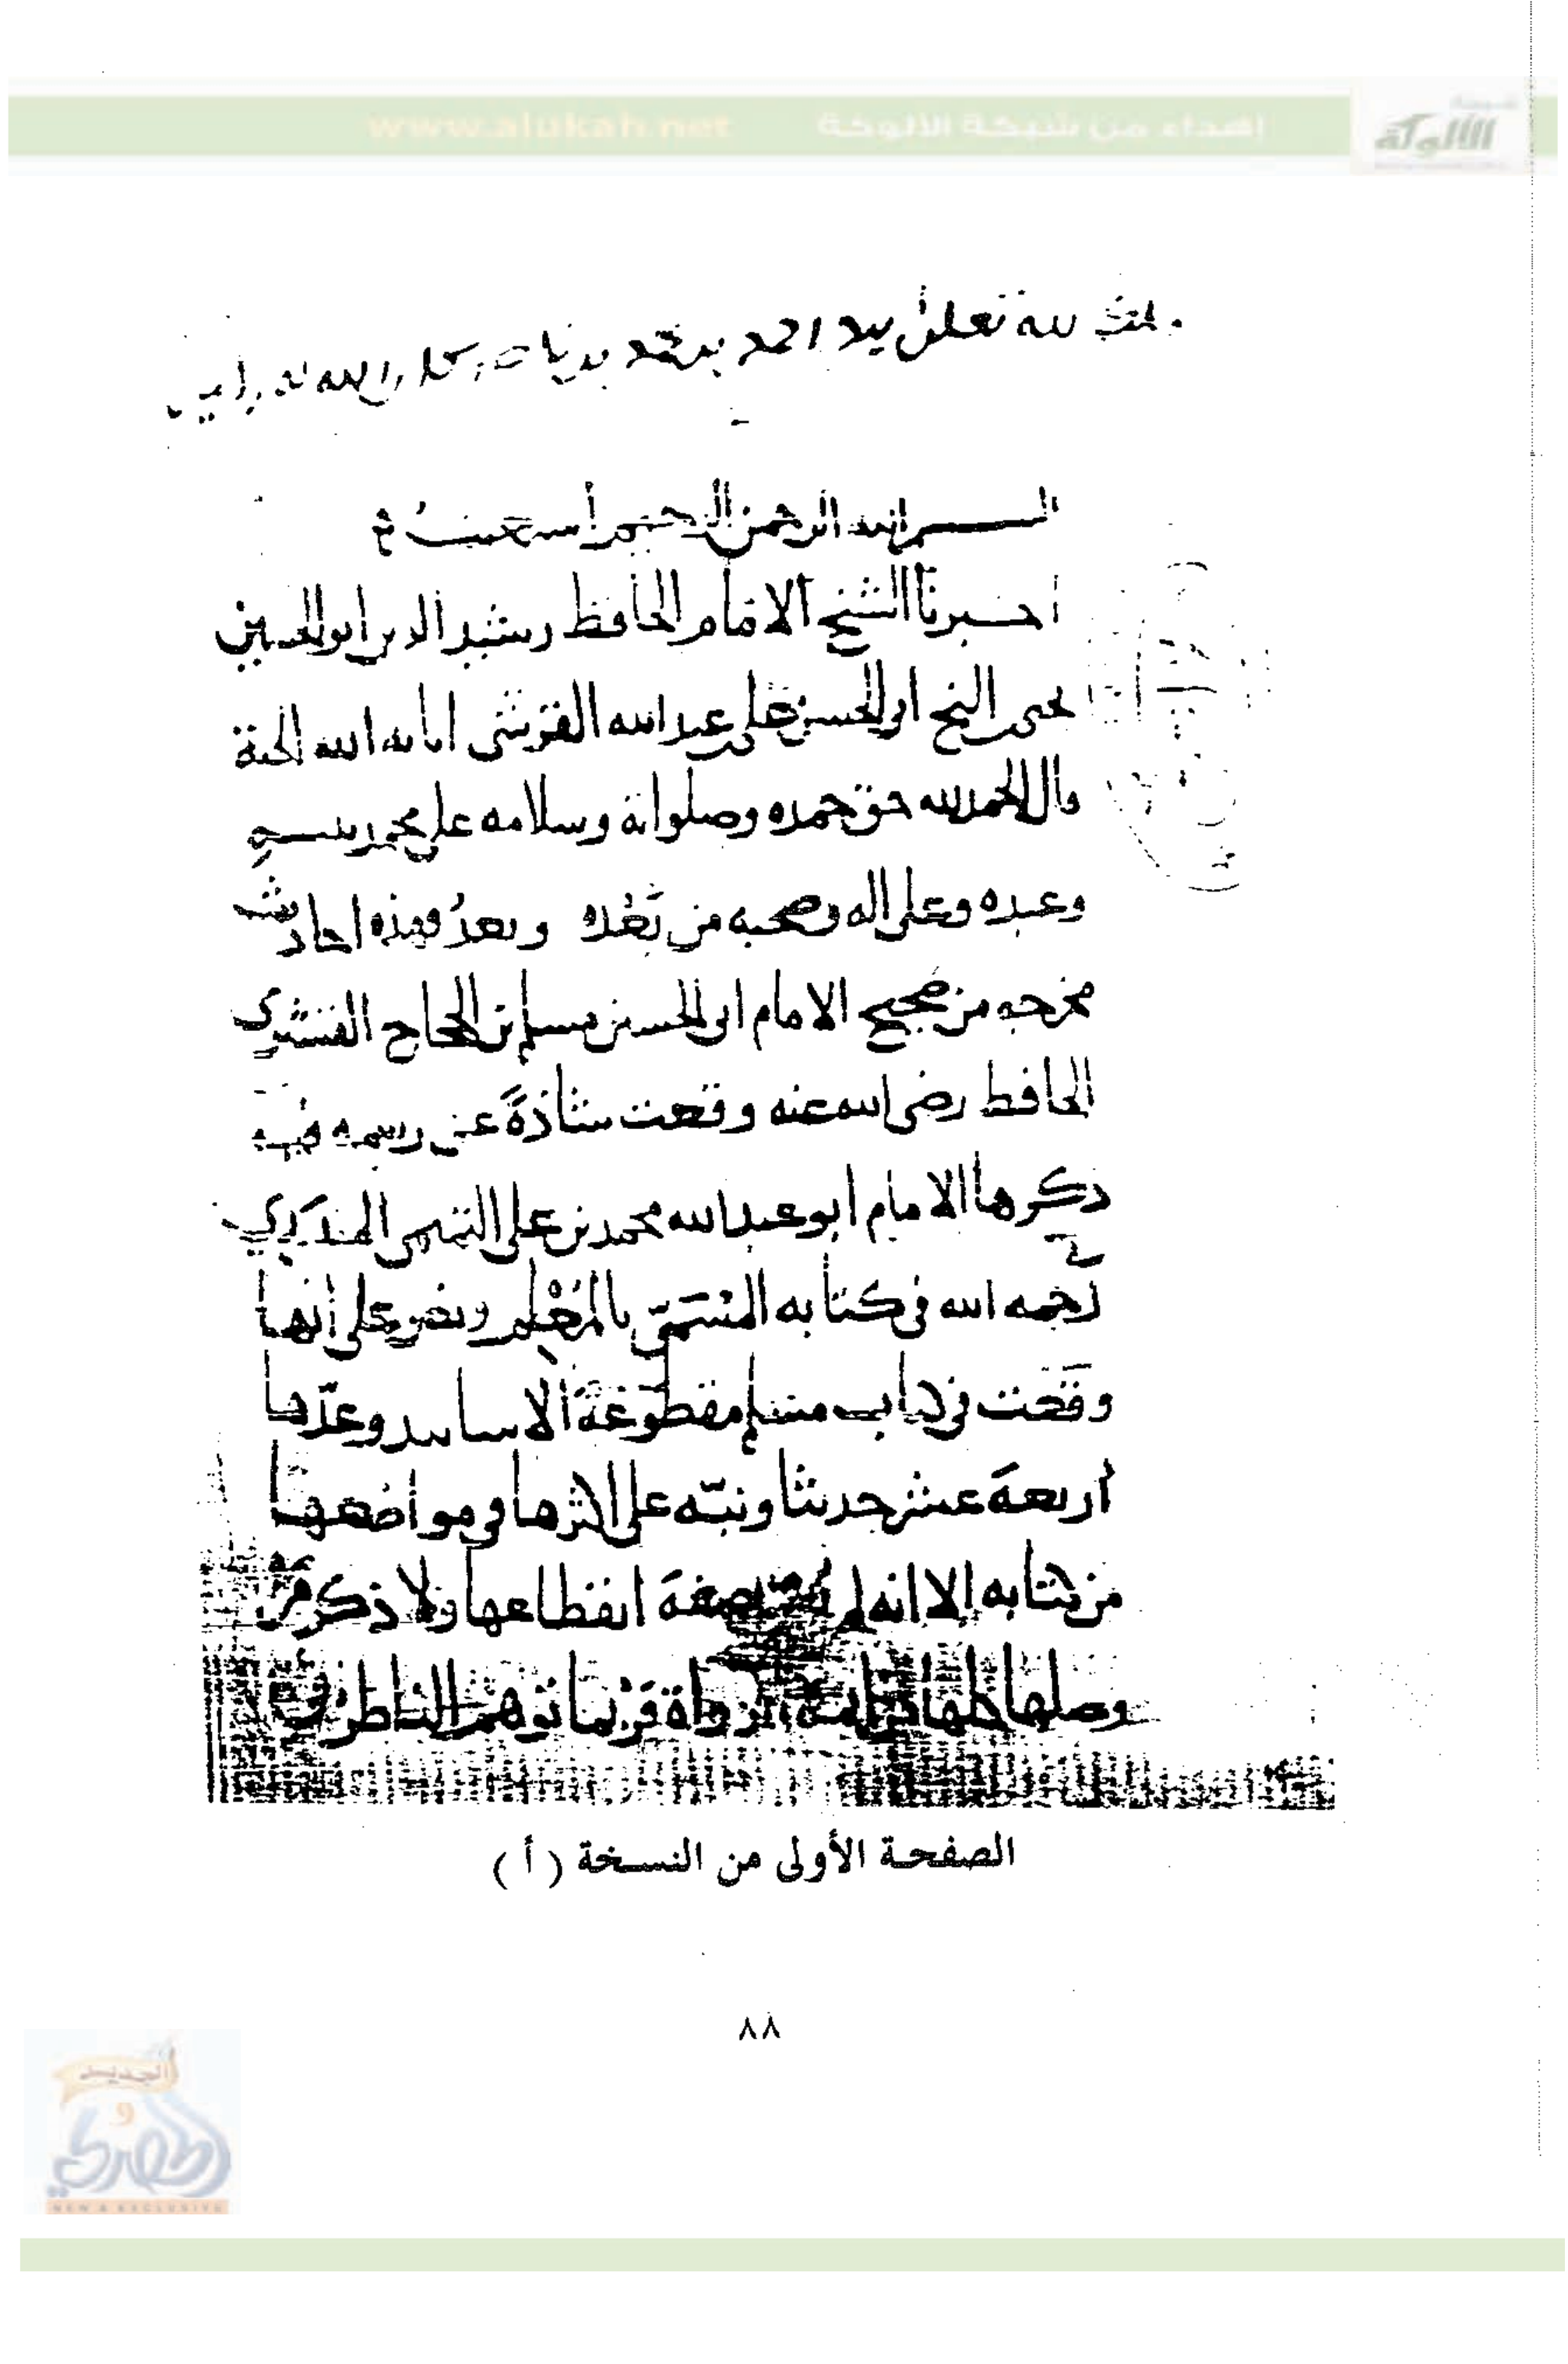 www.alukah.net إهداء من شبكة الألوكة
شبكة الألوكة
لله تعالى بيد احمد بن محمد
بسم الله الرحمن الرحيم أستعين
اخبرنا الشيخ الامام الحافظ رشيد الدين ابو الحسين
يحيى بن الشيخ ابى الحسن على بن عبد الله القرشى اثابه الله الجنة
قال الحمد لله حق حمده وصلواته وسلامه على محمد نبيه
وعبده وعلى اله وصحبه من بَعْده وبعدُ فهذه احاديث
مخرجه من صحيح الامام ابى الحسين مسلم بن الحجاج القشيرى
الحافظ رضى الله عنه وقعت شاذةً عن رسمه فيه
ذكرها الامام أبو عبد الله محمد بن على التميمى المازرى
رَحمه الله فى كتابه المُسَمّى بالمُعْلم ونص على أنها
وقَعَت فى كتاب مسلم مقطوعَةَ الاسانيد وعدّها
أربعةَ عشر حديثا ونبّه على اكثرها فى مواضعها
من كتابه إلا انه لم يُبين صفةَ انقطاعها ولا ذكر مَنْ
وصلها كلها من الرواة فرُبما توهّم الناظر فى
الصفحة الأولى من النسخة ( أ )
٨٨
الجديد
و
الحصري
NEW & EXCLUSIVE